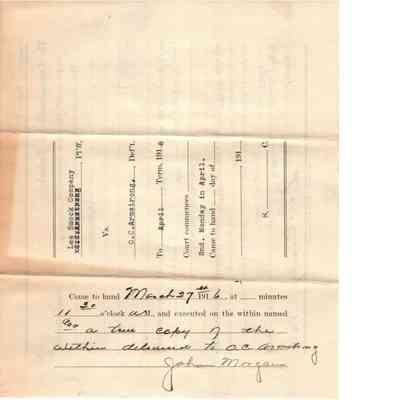 Lee Smock Company
Pl'ff.
Vs.
C.C.Armstrong, Def't.
To April Term, 1916
Court commences
2nd. Monday in April.
Came to hand day of
191
S. C.
Came to hand March 27th 1916, at minutes
11 30 o'clock a M, and executed on the within named
a true copy of the
within delivered to
John Morgan